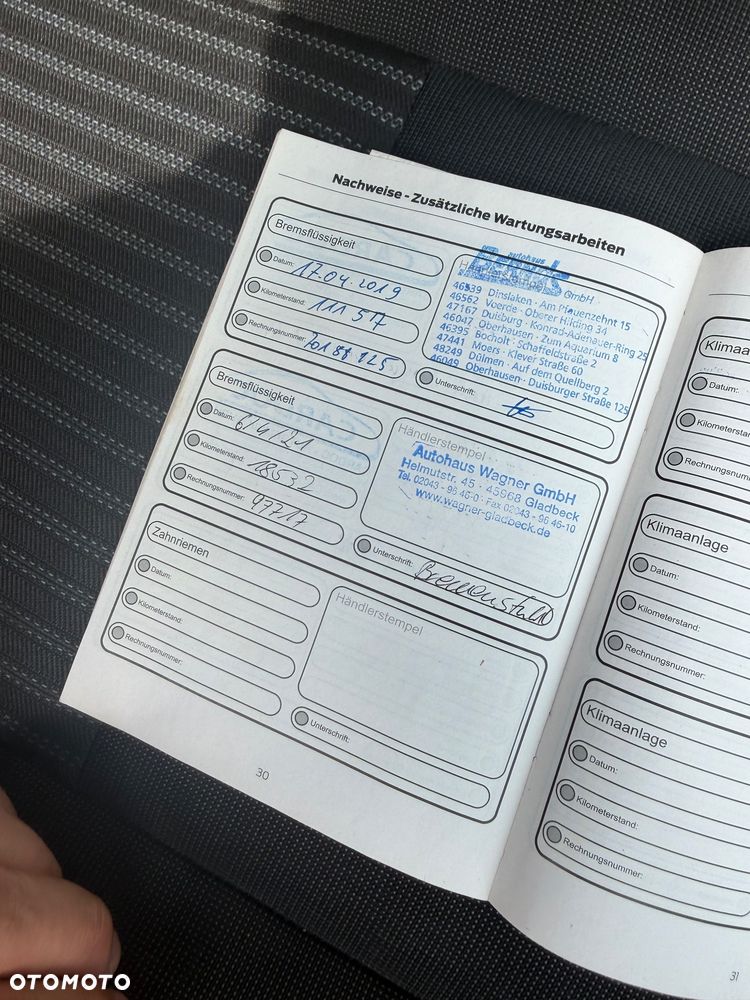 Nachweise - Zusätzliche Wartungsarbeiten
Bremsflüssigkeit
Datum: 17.04.2019
Kilometerstand: 11157
Rechnungsnummer:
autohaus
GmbH
46539 Dinslaken · Am Pfauenzehnt 15
46562 Voerde · Oberer Hilding 34
47167 Duisburg · Konrad-Adenauer-Ring 25
46047 Oberhausen · Zum Aquarium 8
46395 Bocholt · Schaffeldstraße 2
47441 Moers · Klever Straße 60
48249 Dülmen · Auf dem Quellberg 2
46049 Oberhausen · Duisburger Straße 125
Unterschrift:
Bremsflüssigkeit
Datum: 6/4/21
Kilometerstand: 18532
Rechnungsnummer: 49717
Händlerstempel
Autohaus Wagner GmbH
Helmutstr. 45 · 45968 Gladbeck
Tel. 02043 - 96 46-0 · Fax 02043 - 96 46-10
www.wagner-gladbeck.de
Unterschrift:
Zahnriemen
Datum:
Kilometerstand:
Rechnungsnummer:
Händlerstempel
Unterschrift:
30
Klimaa
Datum:
Kilometerst
Rechnungsnumm
Klimaanlage
Datum:
Kilometerstand:
Rechnungsnummer:
Klimaanlage
Datum:
Kilometerstand:
Rechnungsnummer:
31
OTOMOTO